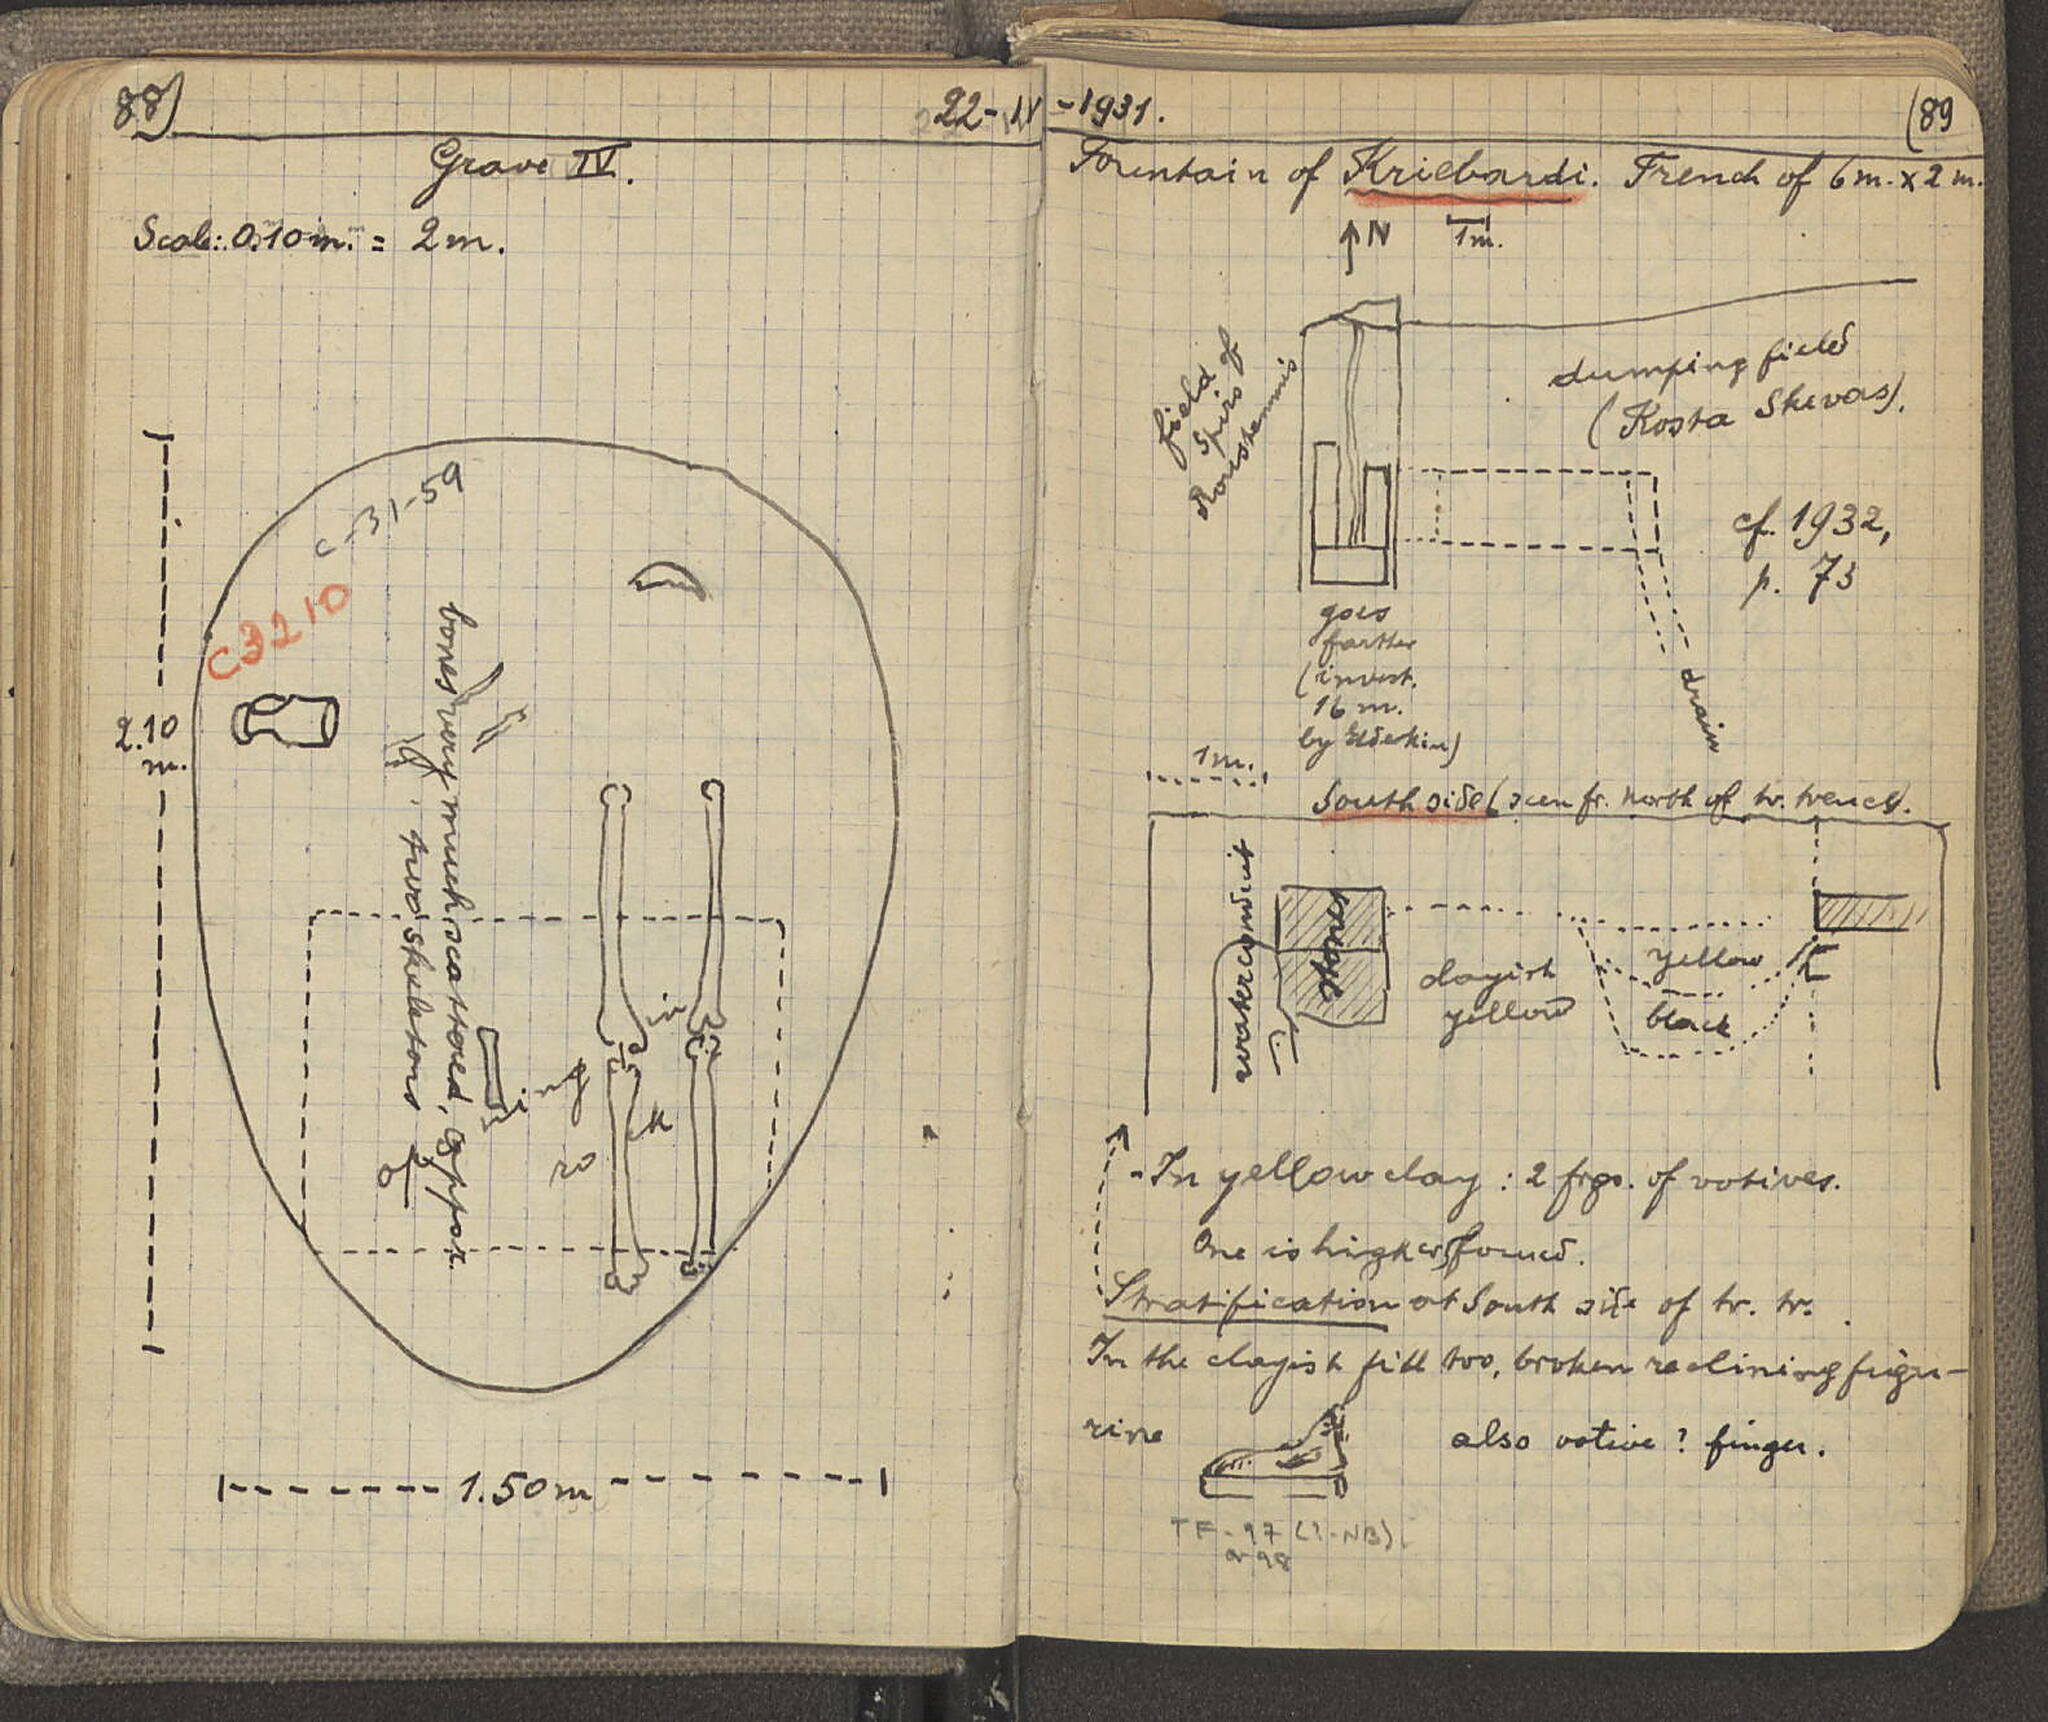 88)
22-IV-1931.
(89
Grave IV.
Scale: 0.10 m. = 2 m.
C-31-59
C3210
2.10
m.
bones very much scattered, appar.
two skeletons
of
1.50 m
Fountain of Kriebardi. Trench of 6 m. x 2 m.
N
1 m.
field of
Spiro
dumping field
(Kosta Skevas).
cf. 1932,
p. 73
goes
farther
(invest.
16 m.
drain
1 m.
South side (seen fr. North of tr. trench).
waterconduit
stones
clayish
yellow
yellow
black
- In yellow clay : 2 frgs. of votives.
One is higher found.
Stratification at South side of tr. tr.
In the clayish fill too, broken reclining figu-
rine
also votive ? finger.
TF-97 (?-NB)
or 98